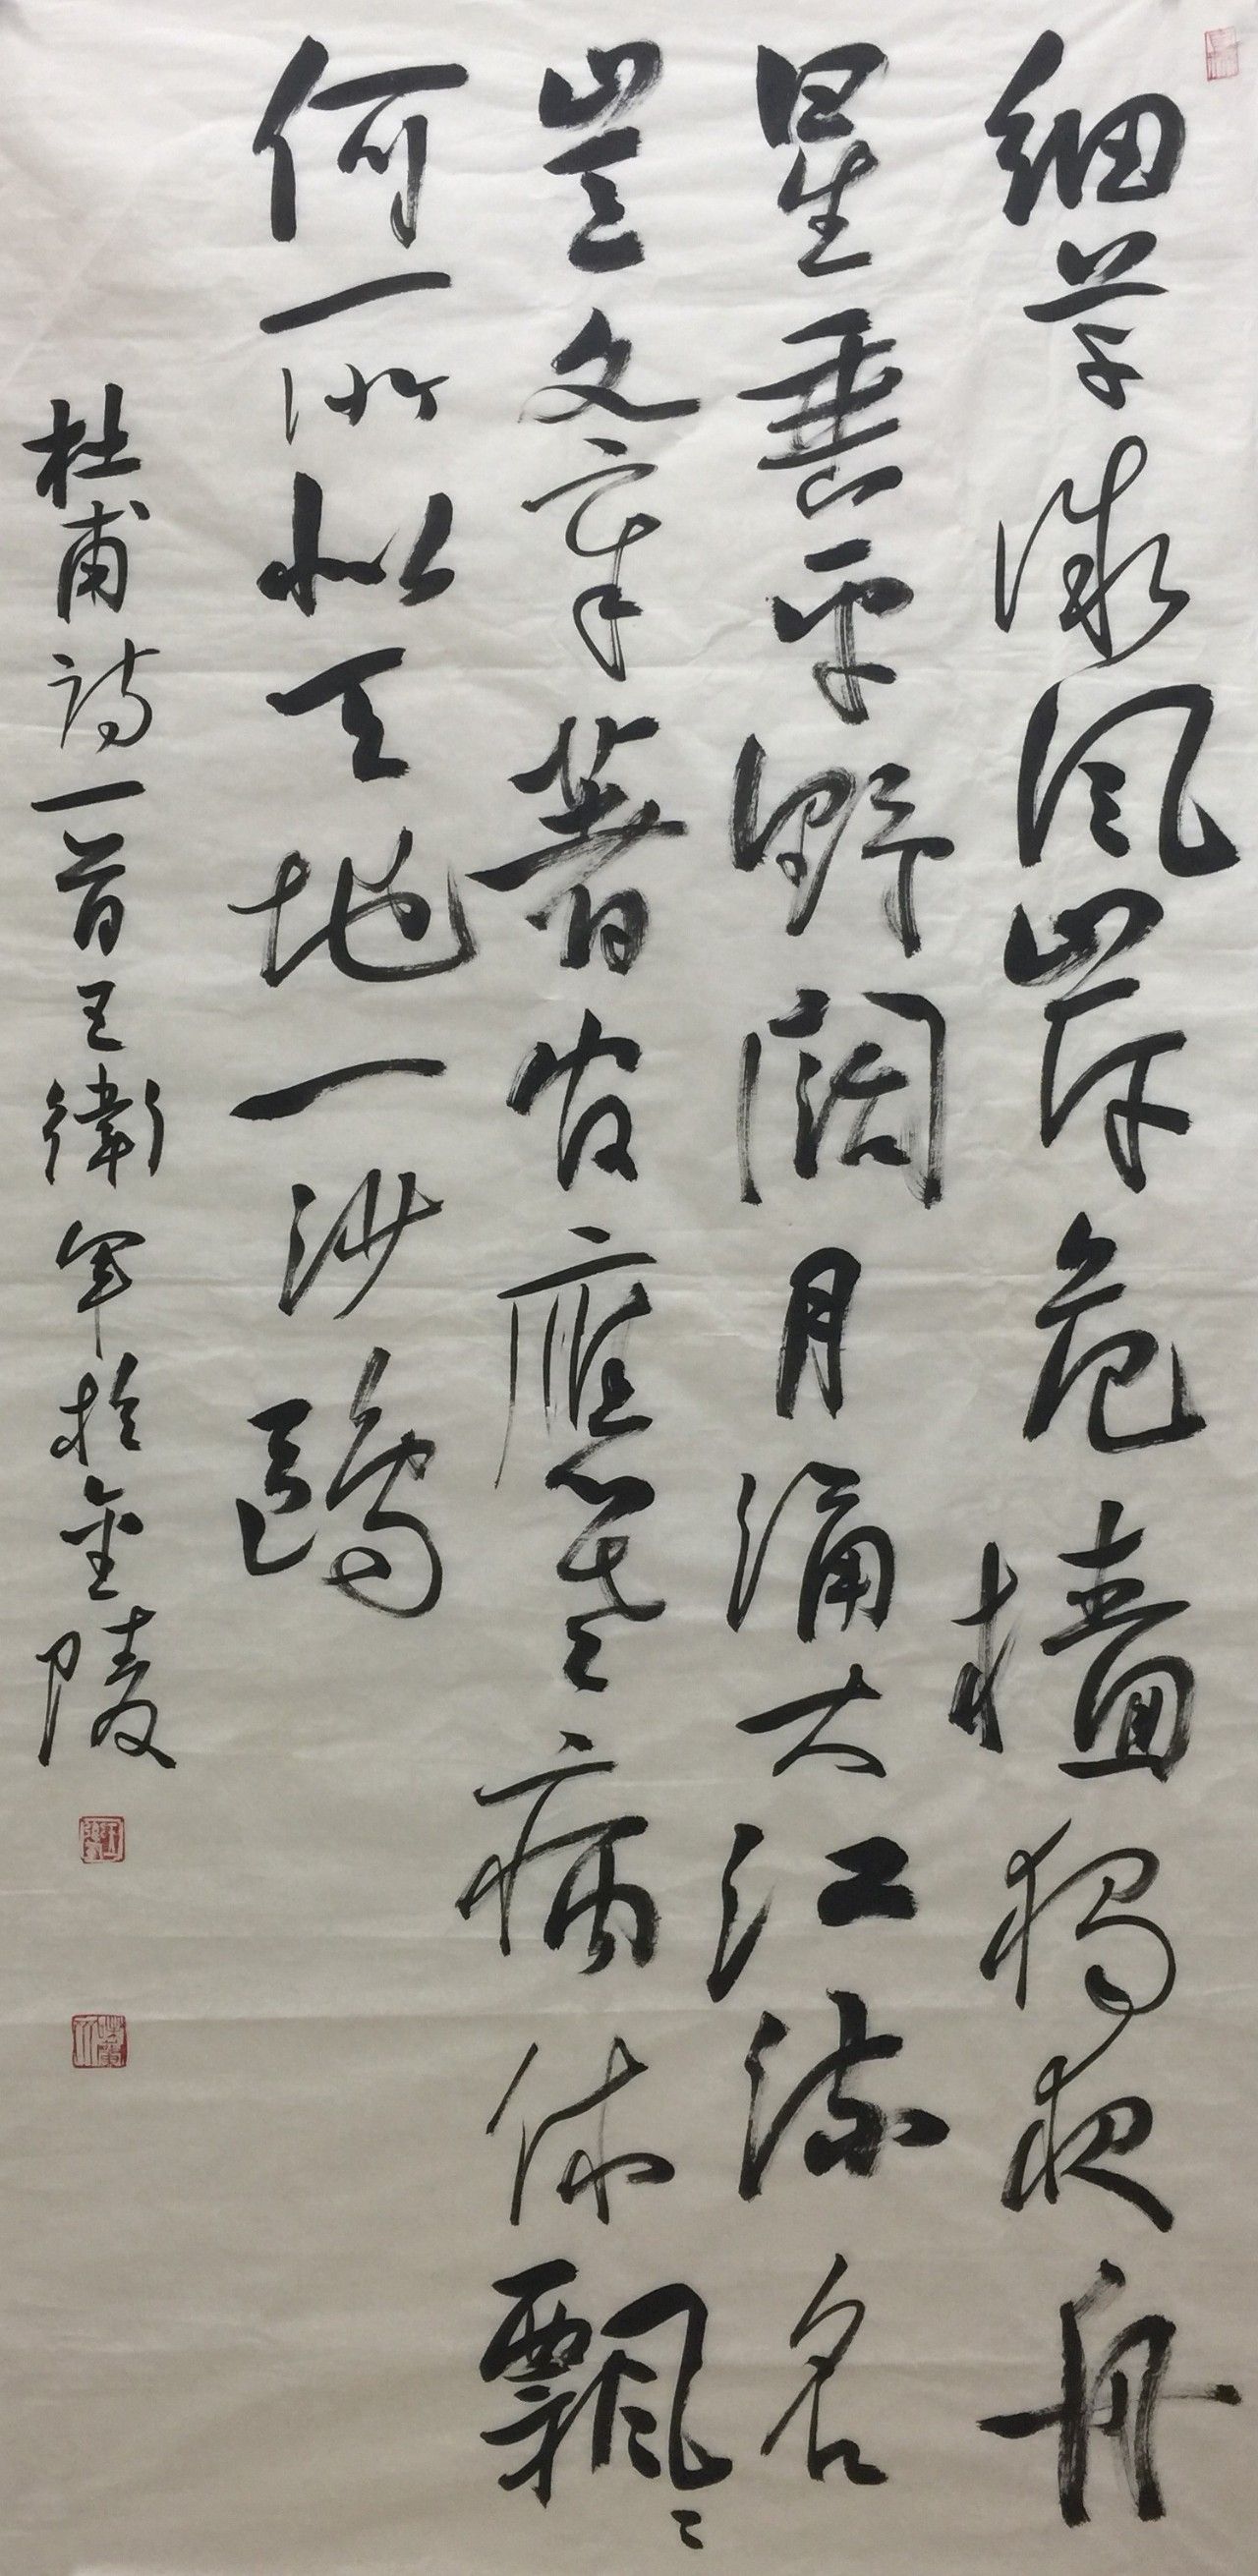 細草微風岸危檣獨夜舟
星垂平野闊月涌大江流名
豈文章著官應老病休飄〻
何一所似天地一沙鷗
杜甫詩一首王衛軍於金陵